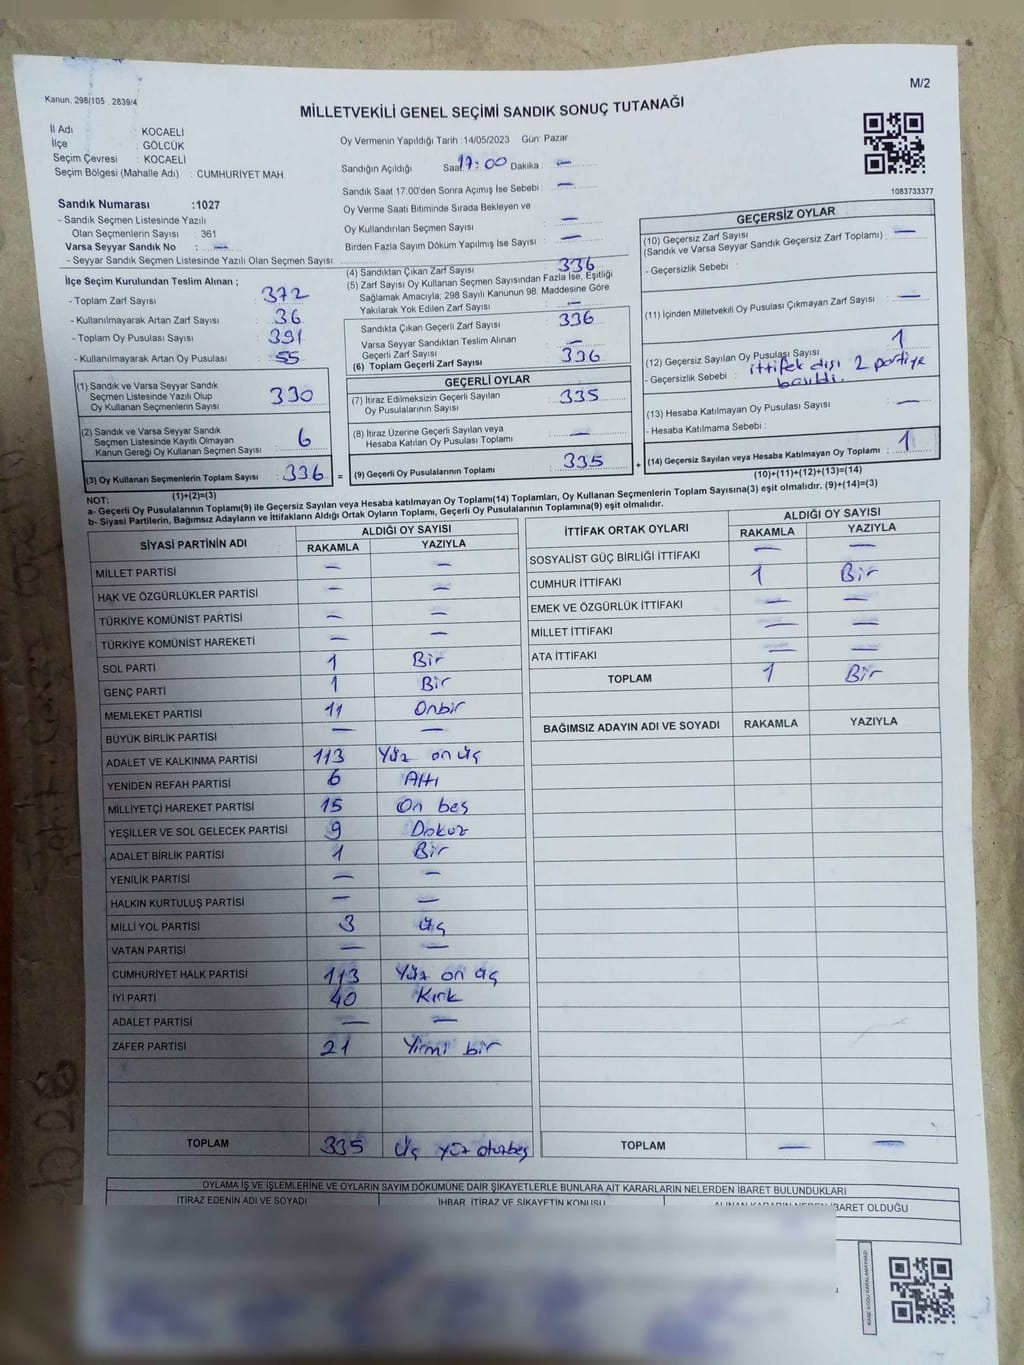 M/2
Kanun, 298/105 , 2839/4
MİLLETVEKİLİ GENEL SEÇİMİ SANDIK SONUÇ TUTANAĞI
İl Adı : KOCAELİ
İlçe : GÖLCÜK
Seçim Çevresi : KOCAELİ
Seçim Bölgesi (Mahalle Adı) : CUMHURİYET MAH
Sandık Numarası :1027
- Sandık Seçmen Listesinde Yazılı
Olan Seçmenlerin Sayısı : 361
Varsa Seyyar Sandık No : —
- Seyyar Sandık Seçmen Listesinde Yazılı Olan Seçmen Sayısı:
Oy Vermenin Yapıldığı Tarih :14/05/2023 Gün: Pazar
Sandığın Açıldığı Saat 17:00 Dakika : —
Sandık Saat 17:00'den Sonra Açımış İse Sebebi : —
Oy Verme Saati Bitiminde Sırada Bekleyen ve
Oy Kullandırılan Seçmen Sayısı : —
Birden Fazla Sayım Döküm Yapılmış İse Sayısı : —
1083733377
İlçe Seçim Kurulundan Teslim Alınan ;
- Toplam Zarf Sayısı : 372
- Kullanılmayarak Artan Zarf Sayısı : 36
- Toplam Oy Pusulası Sayısı : 391
- Kullanılmayarak Artan Oy Pusulası : 55
(1) Sandık ve Varsa Seyyar Sandık
Seçmen Listesinde Yazılı Olup
Oy Kullanan Seçmenlerin Sayısı : 330
(2) Sandık ve Varsa Seyyar Sandık
Seçmen Listesinde Kayıtlı Olmayan
Kanun Gereği Oy Kullanan Seçmen Sayısı : 6
(3) Oy Kullanan Seçmenlerin Toplam Sayısı : 336 =
(1)+(2)=(3)
(4) Sandıktan Çıkan Zarf Sayısı : 336
(5) Zarf Sayısı Oy Kullanan Seçmen Sayısından Fazla İse, Eşitliği
Sağlamak Amacıyla, 298 Sayılı Kanunun 98. Maddesine Göre
Yakılarak Yok Edilen Zarf Sayısı : —
Sandıkta Çıkan Geçerli Zarf Sayısı : 336
Varsa Seyyar Sandıktan Teslim Alınan
Geçerli Zarf Sayısı : —
(6) Toplam Geçerli Zarf Sayısı : 336
GEÇERLİ OYLAR
(7) İtiraz Edilmeksizin Geçerli Sayılan
Oy Pusulalarının Sayısı : 335
(8) İtiraz Üzerine Geçerli Sayılan veya
Hesaba Katılan Oy Pusulası Toplamı : —
(9) Geçerli Oy Pusulalarının Toplamı : 335 +
GEÇERSİZ OYLAR
(10) Geçersiz Zarf Sayısı
(Sandık ve Varsa Seyyar Sandık Geçersiz Zarf Toplamı) : —
- Geçersizlik Sebebi :
(11) İçinden Milletvekili Oy Pusulası Çıkmayan Zarf Sayısı : —
(12) Geçersiz Sayılan Oy Pusulası Sayısı : 1
- Geçersizlik Sebebi : ittifak dışı 2 partiye
basıldı.
(13) Hesaba Katılmayan Oy Pusulası Sayısı : —
- Hesaba Katılmama Sebebi :
(14) Geçersiz Sayılan veya Hesaba Katılmayan Oy Toplamı : 1
(10)+(11)+(12)+(13)=(14)
NOT:
a- Geçerli Oy Pusulalarının Toplamı(9) ile Geçersiz Sayılan veya Hesaba katılmayan Oy Toplamı(14) Toplamları, Oy Kullanan Seçmenlerin Toplam Sayısına(3) eşit olmalıdır. (9)+(14)=(3)
b- Siyasi Partilerin, Bağımsız Adayların ve İttifakların Aldığı Ortak Oyların Toplamı, Geçerli Oy Pusulalarının Toplamına(9) eşit olmalıdır.
SİYASİ PARTİNİN ADI ALDIĞI OY SAYISI
RAKAMLA YAZIYLA
MİLLET PARTİSİ — —
HAK VE ÖZGÜRLÜKLER PARTİSİ — —
TÜRKİYE KOMÜNİST PARTİSİ — —
TÜRKİYE KOMÜNİST HAREKETİ — —
SOL PARTİ 1 Bir
GENÇ PARTİ 1 Bir
MEMLEKET PARTİSİ 11 Onbir
BÜYÜK BİRLİK PARTİSİ — —
ADALET VE KALKINMA PARTİSİ 113 Yüz on üç
YENİDEN REFAH PARTİSİ 6 Altı
MİLLİYETÇİ HAREKET PARTİSİ 15 On beş
YEŞİLLER VE SOL GELECEK PARTİSİ 9 Dokuz
ADALET BİRLİK PARTİSİ 1 Bir
YENİLİK PARTİSİ — —
HALKIN KURTULUŞ PARTİSİ — —
MİLLİ YOL PARTİSİ 3 Üç
VATAN PARTİSİ — —
CUMHURİYET HALK PARTİSİ 113 Yüz on üç
İYİ PARTİ 40 Kırk
ADALET PARTİSİ — —
ZAFER PARTİSİ 21 Yirmi bir
TOPLAM 335 Üç yüz otuzbeş
İTTİFAK ORTAK OYLARI ALDIĞI OY SAYISI
RAKAMLA YAZIYLA
SOSYALİST GÜÇ BİRLİĞİ İTTİFAKI — —
CUMHUR İTTİFAKI 1 Bir
EMEK VE ÖZGÜRLÜK İTTİFAKI — —
MİLLET İTTİFAKI — —
ATA İTTİFAKI — —
TOPLAM 1 Bir
BAĞIMSIZ ADAYIN ADI VE SOYADI RAKAMLA YAZIYLA
TOPLAM — —
OYLAMA İŞ VE İŞLEMLERİNE VE OYLARIN SAYIM DÖKÜMÜNE DAİR ŞİKAYETLERLE BUNLARA AİT KARARLARIN NELERDEN İBARET BULUNDUKLARI
İTİRAZ EDENİN ADI VE SOYADI İHBAR, İTİRAZ VE ŞİKAYETİN KONUSU ALINAN KARARIN NEDEN İBARET OLDUĞU